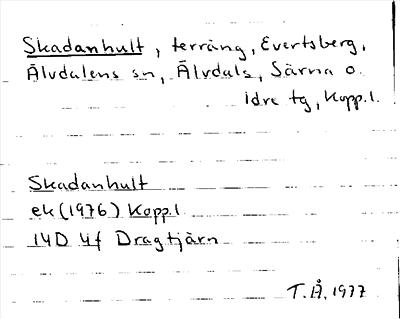 Skadanhult, terräng, Evertsberg,
Älvdalens sn, Älvdals, Särna o.
Idre tg, Kopp.l.
Skadanhult
ek (1976) Kopp.l
14D 4f Dragtjärn
T.Å. 1977